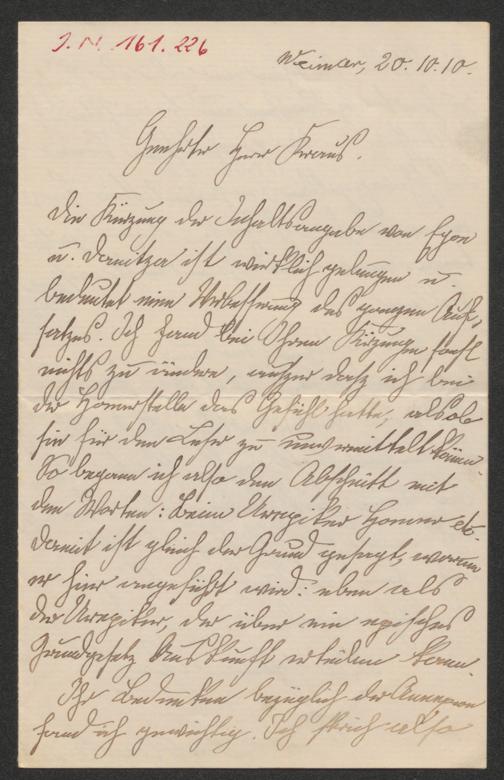 J. N. 161.226
Weimar, 20.10.10.
Geehrter Herr Kraus.
Die Kürzung der Inhaltsangabe von Egon
u. Danitza ist wirklich gelungen u.
bedeutet eine Verbesserung des ganzen Auf-
satzes. Ich fand bei Ihren Kürzungen sonst
nichts zu ändern, außer daß ich bei
der Homerstelle das Gefühl hatte, als ob
sie für den Leser zu unvermittelt käme.
So begann ich also den Abschnitt mit
den Worten: Beim Urepiker Homer etc.
Damit ist gleich der Grund gesagt, warum
er hier angeführt wird: eben als
der Urepiker, der über ein episches
Grundgesetz Auskunft erteilen kann.
Ihr Bedenken bezüglich der Annexion
fand ich gewichtig. Ich strich also